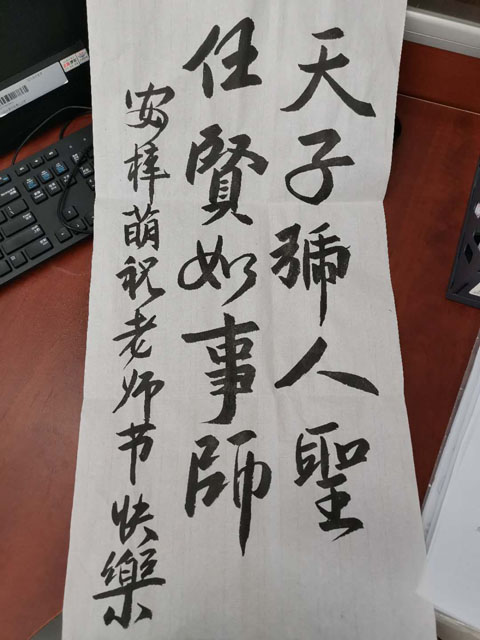 天子號人聖
任賢如事師
安梓萌祝老师节快樂